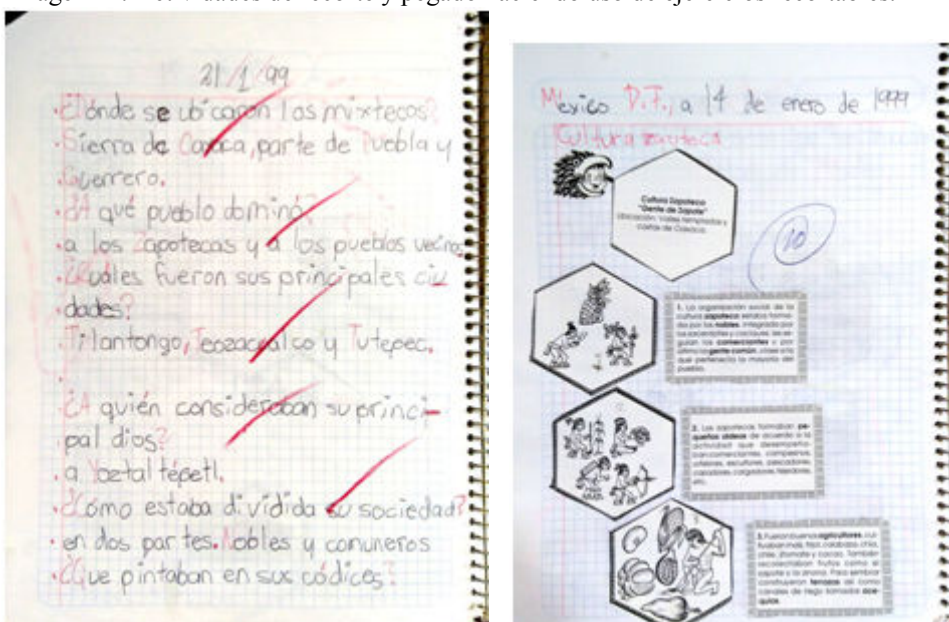 21/1/99
¿Dónde se ubicaron los mixtecos?
Sierra de Oaxaca, parte de Puebla y
Guerrero.
¿A qué pueblo dominó?
a los Zapotecas y a los pueblos vecinos
¿Cuáles fueron sus principales ciu
dades?
Tilantongo, Teozacoalco y Tutepec.
¿A quién consideraban su princi-
pal dios?
a Yoetal tépetl.
¿Cómo estaba dívídida su sociedad?
en dos partes. Nobles y comuneros
¿Que pintaban en sus códices?
México D.F., a 14 de enero de 1999
Cultura zapoteca
Cultura Zapoteca
"Gente de Zapote"
Ubicación: Valles templados y
costas de Oaxaca.
10
1. La organización social de la
cultura zapoteca estaba forma-
da por los nobles, integrada por
los sacerdotes y caciques, les se-
guían los comerciantes y por
último la gente común, clase a la
que pertenecía la mayoría del
pueblo.
2. Los zapotecas formaban pe-
queñas aldeas de acuerdo a la
actividad que desempeña-
ban: comerciantes, campesinos,
artesanos, escultores, pescadores,
cazadores, cargadores, tejedores,
etc.
3. Fueron buenos agricultores, cul-
tivaban maíz, frijol, calabaza, chía,
chile, jitomate y cacao. También
recolectaban frutos como el
zapote y la anona. Para sembrar
construyeron terrazas así como
canales de riego llamados ace-
quias.